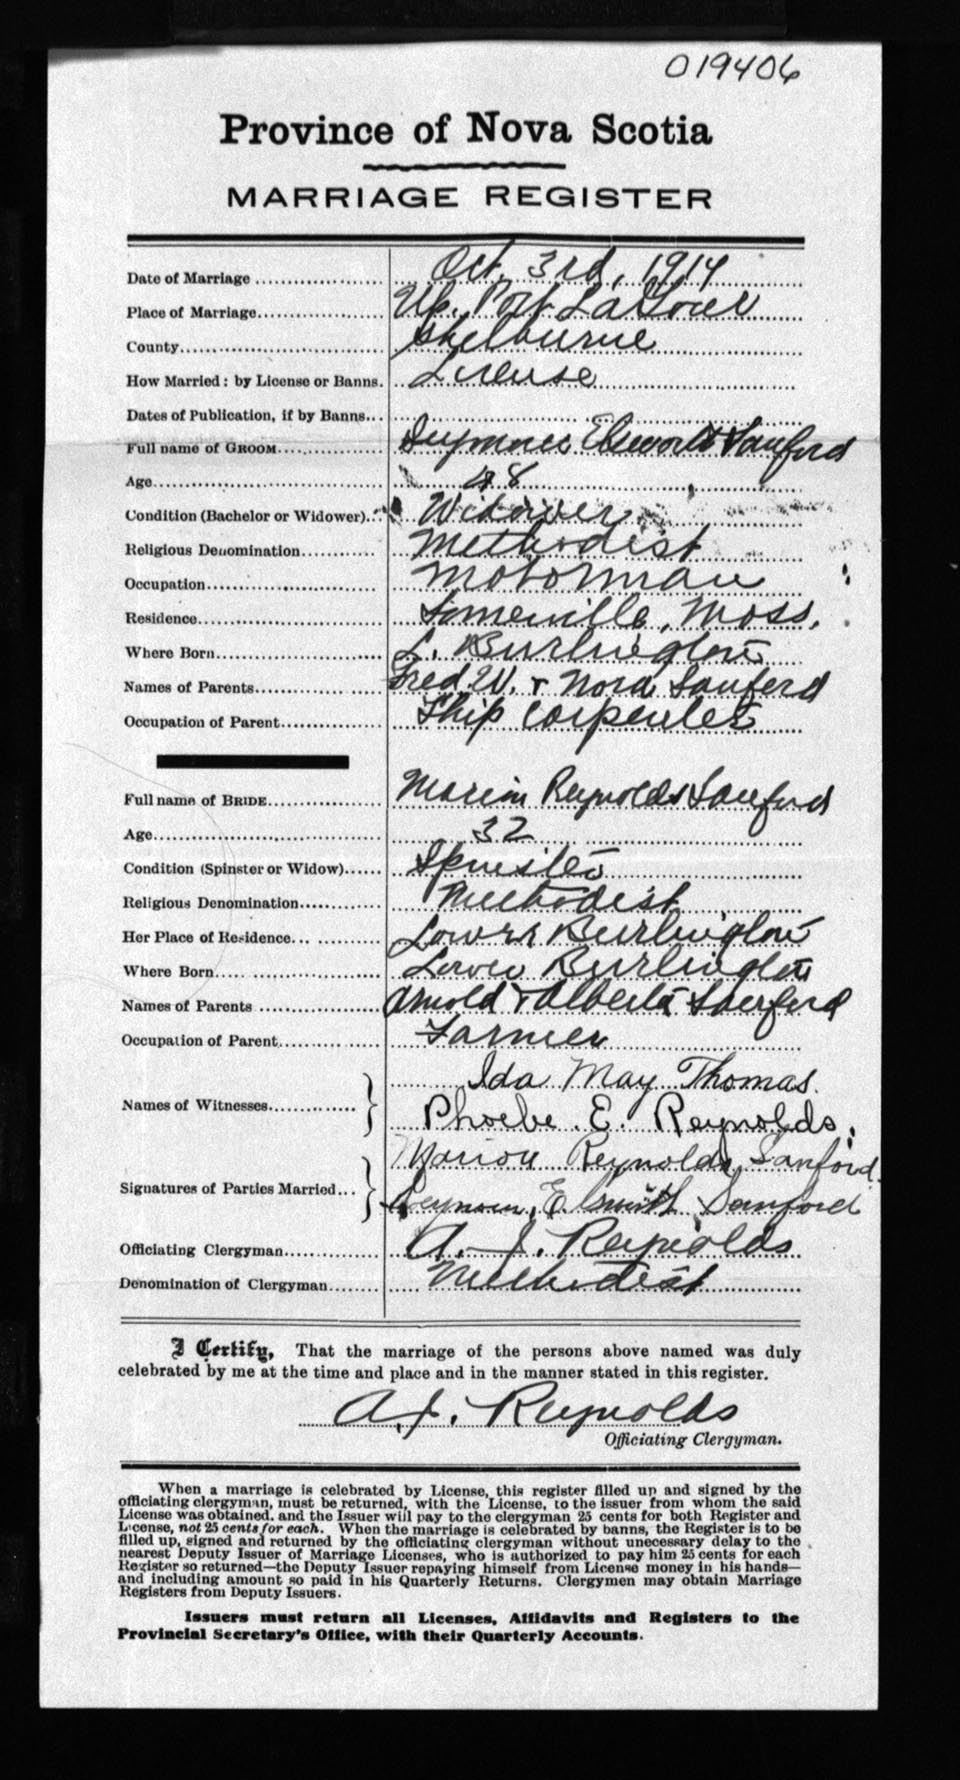 019406
Province of Nova Scotia
MARRIAGE REGISTER
Date of Marriage Oct. 3rd, 1914
Place of Marriage Up. Port LaTour
County Shelburne
How Married: by License or Banns. License
Dates of Publication, if by Banns
Full name of GROOM Seymour Elsworth Sanford
Age 48
Condition (Bachelor or Widower) Widower
Religious Denomination Methodist
Occupation Motorman
Residence Somerville, Mass.
Where Born L. Burlington
Names of Parents Fred W. & Nora Sanford
Occupation of Parent Ship Carpenter
Full name of BRIDE Marion Reynolds Sanford
Age 32
Condition (Spinster or Widow) Spinster
Religious Denomination Methodist
Her Place of Residence Lower Burlington
Where Born Lower Burlington
Names of Parents Arnold & Alberta Sanford
Occupation of Parent Farmer
Ida May Thomas.
Names of Witnesses
Phoebe E. Reynolds.
Marion Reynolds Sanford.
Signatures of Parties Married
Seymour Elsworth Sanford
Officiating Clergyman A. J. Reynolds
Denomination of Clergyman Methodist
I Certify, That the marriage of the persons above named was duly
celebrated by me at the time and place and in the manner stated in this register.
A. J. Reynolds
Officiating Clergyman.
When a marriage is celebrated by License, this register filled up and signed by the
officiating clergyman, must be returned, with the License, to the issuer from whom the said
License was obtained, and the Issuer will pay to the clergyman 25 cents for both Register and
License, not 25 cents for each. When the marriage is celebrated by banns, the Register is to be
filled up, signed and returned by the officiating clergyman without unecessary delay to the
nearest Deputy Issuer of Marriage Licenses, who is authorized to pay him 25 cents for each
Register so returned—the Deputy Issuer repaying himself from License money in his hands—
and including amount so paid in his Quarterly Returns. Clergymen may obtain Marriage
Registers from Deputy Issuers.
Issuers must return all Licenses, Affidavits and Registers to the
Provincial Secretary's Office, with their Quarterly Accounts.